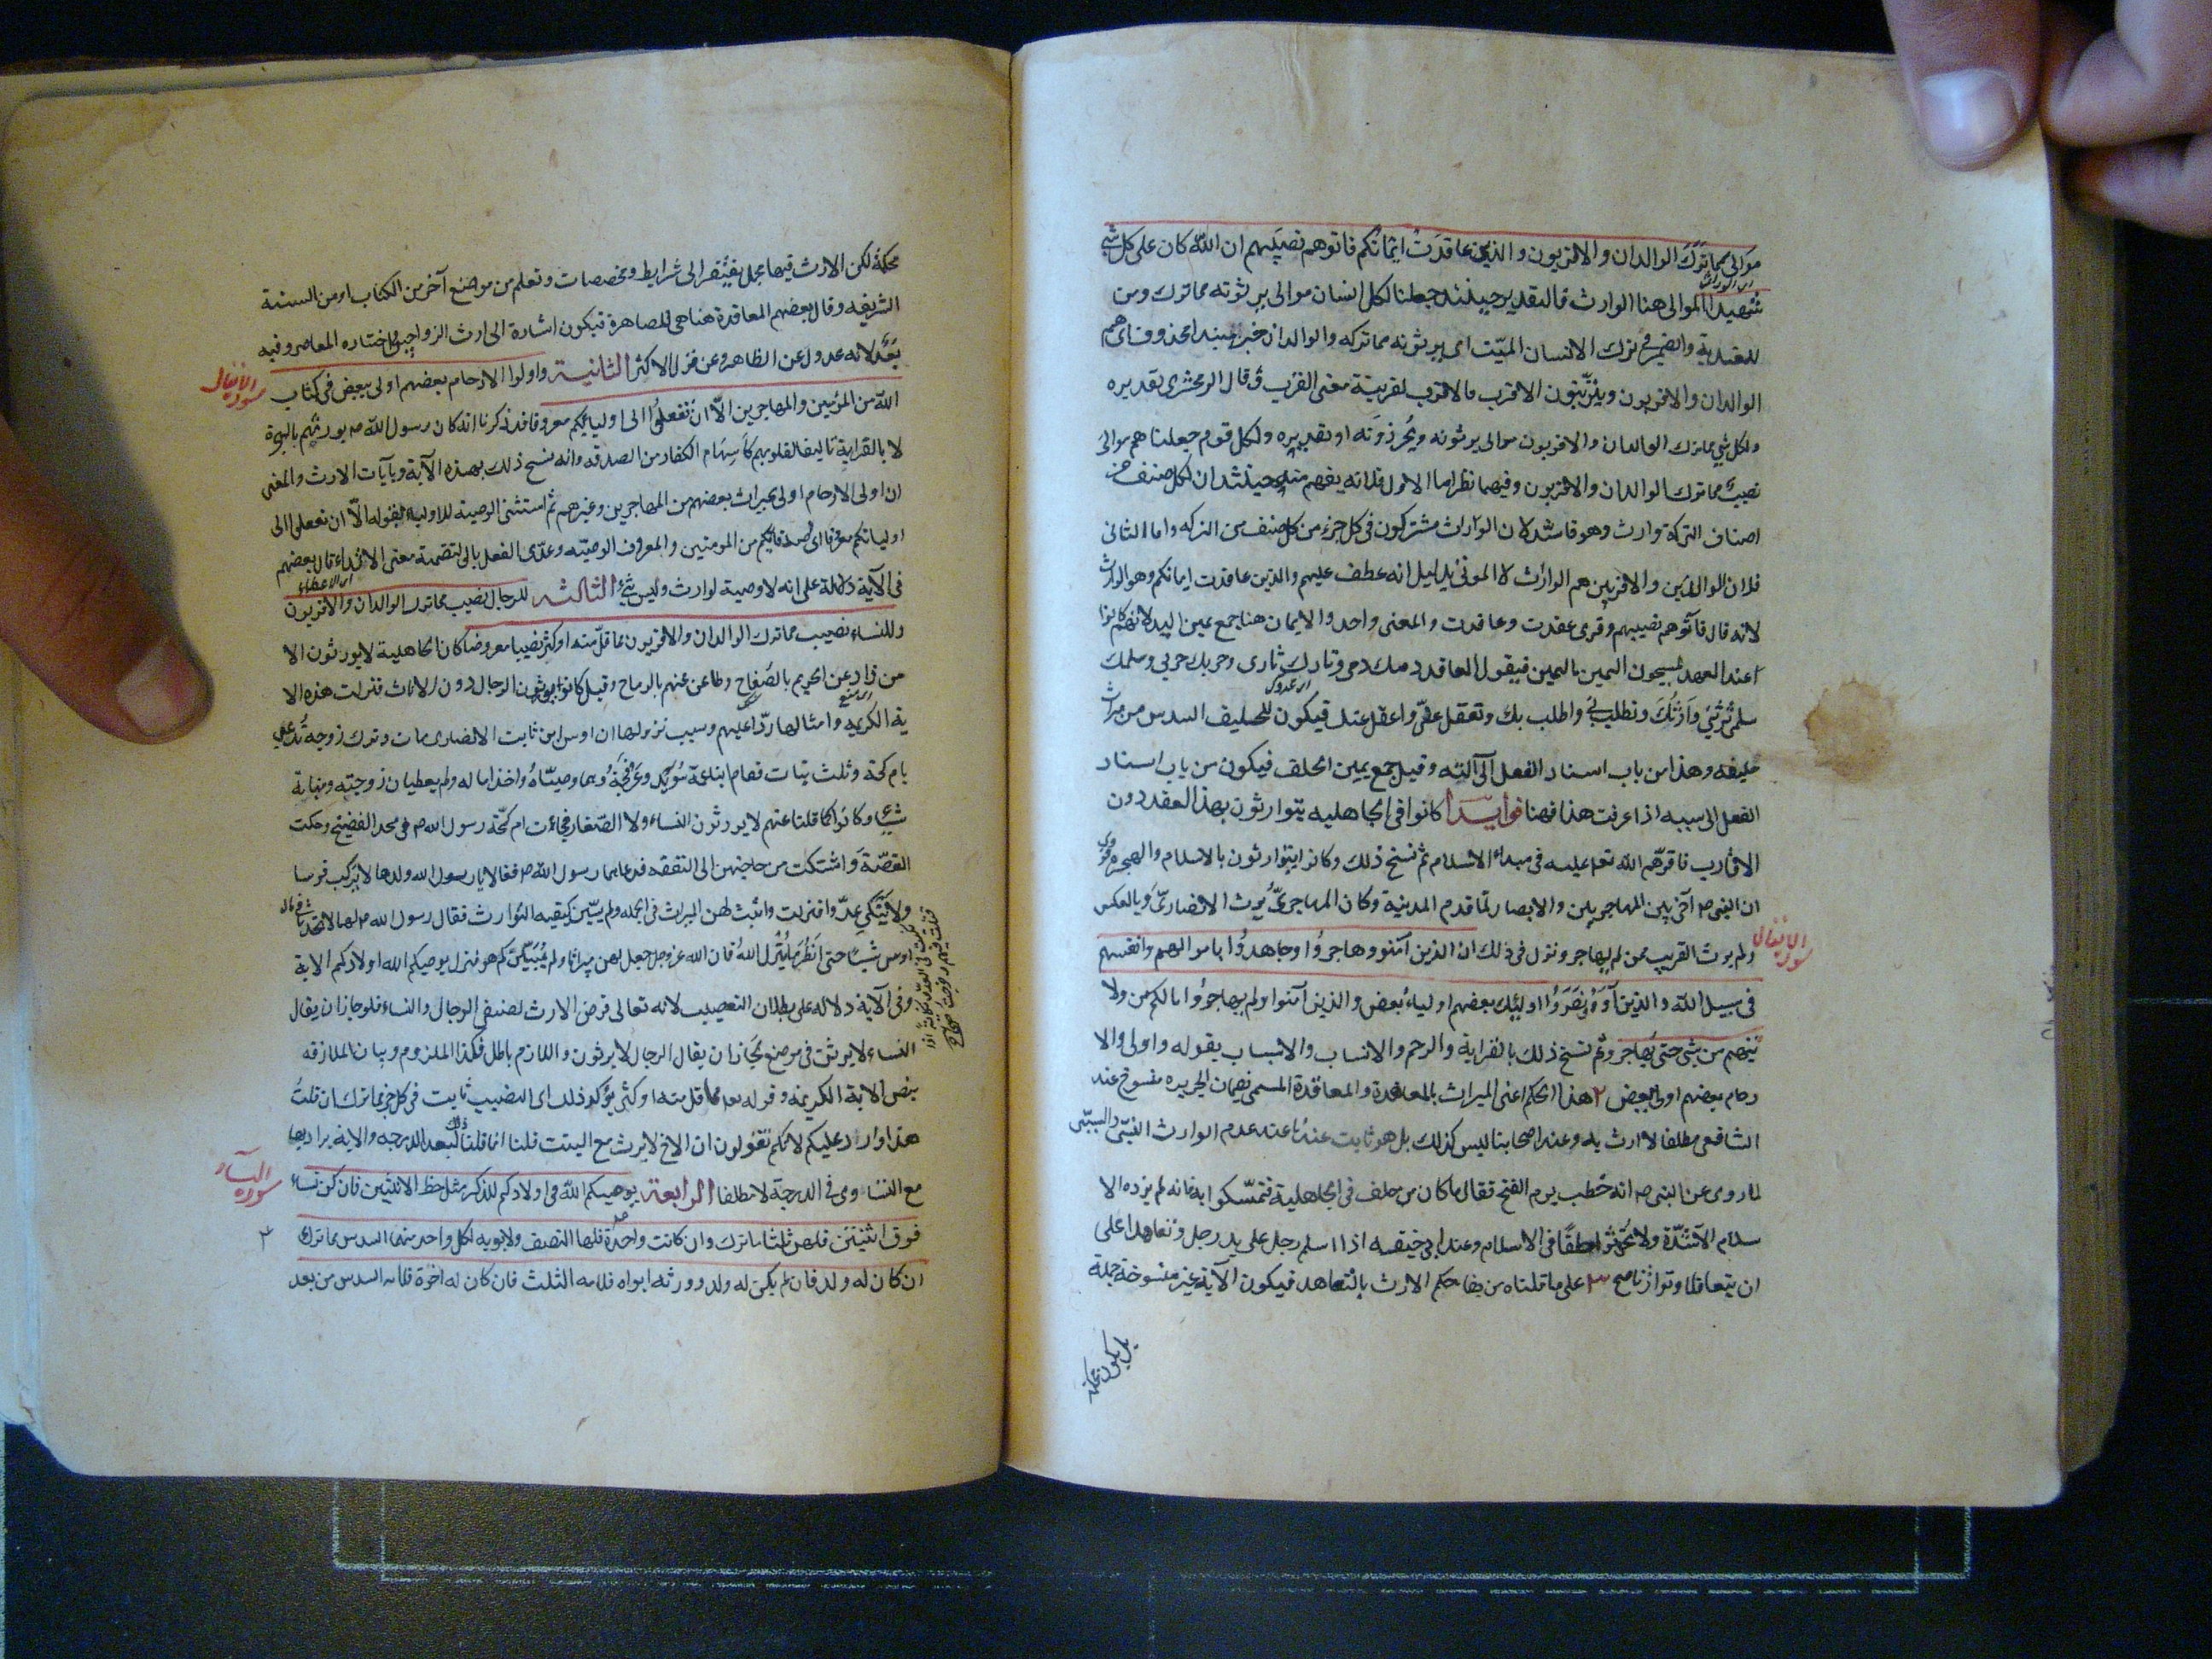 موالى مما ترك الوالدان والاقربون والذين عاقدت ايمانكم فاتوهم نصيبهم ان الله كان على كل شئ
شهيدا الموالى هنا الوارث فالتقدير حينئذ جعلنا لكل انسان موالى يرثونه مما ترك ومن
للتعدية والضمير فى ترك الانسان الميّت اى يرثونه مما تركه والوالدان خبر مبتدا محذوف اى هم
الوالدان والاقربون ويترتبون الاقرب فالاقرب لقرينة معنى القرب وقال الزمخشرى تقديره
ولكل شئ مما ترك الوالدان والاقربون موالى يرثونه ويحرزونه او تقديره ولكل قوم جعلناهم موالى
نصيب مما ترك الوالدان والاقربون وفيهما نظر اما الاول فلانه يفهم منه حينئذ ان لكل صنف من
اصناف التركة وارث وهو فاسد لان الوارث مشتركون فى كل جزء من كل صنف من التركه واما الثانى
فلان الوالدين والاقربين هم الوارث لا الموتى بدليل انه عطف عليهم والذين عاقدت ايمانكم وهو الوارث
لانه قال فآتوهم نصيبهم وقرى عقدت وعاقدت والمعنى واحد والايمان هنا جمع يمين اليد لانهم كانوا
عند العهد يمسحون اليمين باليمين فيقول العاقد دمك دمى وثارك ثارى وحربك حربى وسلمك
سلمى ترثنى وارثك وتطلب بى واطلب بك وتعقل عنى واعقل عنك فيكون للحليف السدس من ميراث
حليفه وهذا من باب اسناد الفعل الى آلته وقيل جمع يمين الحلف فيكون من باب اسناد
الفعل الى سببه اذا عرفت هذا فهنا فوايد ا كانوا فى الجاهليه يتوارثون بهذا العقد دون
الاقارب فاقرهم الله تعا عليه فى مبداء الاسلام ثم نسخ ذلك وكانوا يتوارثون بالاسلام والهجره وروى
ان النبى ص آخى بين المهاجرين والانصار لما قدم المدينة وكان المهاجرىّ يرث الانصارىّ وبالعكس
ولم يرث القريب ممن لم يهاجر ونزل فى ذلك ان الذين آمنوا وهاجروا وجاهدوا باموالهم وانفسهم
سورة الانفال
فى سبيل الله والذين آووا ونصروا اولئك بعضهم اولياء بعض والذين آمنوا ولم يهاجروا ما لكم من ولا
يتهم من شئ حتى يهاجروا ثم نسخ ذلك بالقرابة والرحم والانساب والاسباب بقوله واولوا الا
رحام بعضهم اولى ببعض ٢ هذا الحكم اعنى الميراث بالمعاهدة والمعاقدة المسمى بضمان الجريره منسوخ عند
الشافعى مطلقا لا ارث به وعند اصحابنا ليس كذلك بل هو ثابت عندنا عند عدم الوارث النسبى والسببى
لما روى عن النبى ص انه خطب يوم الفتح فقال ما كان من حلف فى الجاهلية فتمسكوا به فانه لم يزده الا
سلام الا شدّة ولا تحدثوا حلفا فى الاسلام وعند ابى حنيفه اذا اسلم رجل على يد رجل وتعاهدا على
ان يتعاقلا وتوارثا صح ٣ على ما قلناه من بقا حكم الارث بالتعاهد فيكون الآية غير منسوخة جملة
بل يكون محكمة
محكمة لكن الارث فيها مجمل يفتقر الى شرايط ومخصصات وتعلم من مواضع آخر من الكتاب او من السنة
الشريفه وقال بعضهم المعاقدة هنا هى المصاهرة فيكون اشارة الى ارث الزواجين واختاره المعاصر وفيه
بعد لانه عدول عن الظاهر وعن قول الاكثر الثانية واولوا الارحام بعضهم اولى ببعض فى كتاب
سورة الانفال
الله من المؤمنين والمهاجرين الا ان تفعلوا الى اوليائكم معروفا قد ذكرنا انه كان رسول الله ص يورثهم بالهجرة
لا بالقرابة تاليفا لقلوبهم كاسهام الكفار من الصدقه وانه نسخ ذلك بهذه الآية وبآيات الارث والمعنى
ان اولى الارحام اولى بميراث بعضهم من المهاجرين وغيرهم ثم استثنى الوصية للاولياء بقوله الا ان تفعلوا الى
اوليائكم معروفا اى اصدقائكم من المومنين والمعروف الوصيّه وعدّى الفعل بالى لتضمنه معنى الاسداء قال بعضهم
اى الاعطاء
فى الآية دلالة على انه لا وصية لوارث وليس بشئ الثالثه للرجال نصيب مما ترك الوالدان والاقربون
وللنساء نصيب مما ترك الوالدان والاقربون مما قلّ منه او كثر نصيبا مفروضا كان الجاهلية لا يورثون الا
من ذاد عن الحريم بالصفاح وطاعن عنهم بالرماح وقيل كانوا يورثون الرجال دون الاناث فنزلت هذه الا
ية الكريمه وامثالها ردّا عليهم وسبب نزولها ان اوس ابن ثابت الانصارى مات وترك زوجة تدعى
بام كحة وثلث بنات فقام ابنا عمّه سويد وعرفجة وهما وصيّاه واخذا ماله ولم يعطيا زوجته وبناته
شيئا وكانوا كما قلنا عنهم لا يورثون النساء ولا الصغار فجاءت ام كحّة رسول الله ص فى مسجد الفضيخ وحكت
القصّة واشتكت من حاجتهن الى النفقه فدعاهما رسول الله ص فقالا يا رسول الله ولدها لا يركب فرسا
ولا ينكى عدّوا فنزلت واثبت لهن الميراث فى الجمله ولم يبيّن كيفيه التوارث فقال رسول الله ص لهما لا تحدثا فى مال
اوس شيئا حتى انظر ما ينزل الله فان الله عز وجل جعل لهن ميراثا ولم يبيّن كم هو فنزل يوصيكم الله اولادكم الاية
وفى الآية دلاله على بطلان التعصيب لانه تعالى فرض الارث لصنفى الرجال والنساء فلو جاز ان يقال
النساء لا يرثن فى موضع لجاز ان يقال الرجال لا يرثون واللازم باطل فكذا الملزوم وبيان الملازمه
بنص الاية الكريمه وقوله تعا مما قل منه او كثر يؤكد ذلك اى النصيب ثابت فى كل جز مما ترك ان قلت
هذا وارد عليكم لانكم تقولون ان الاخ لا يرث مع البنت قلنا انما قلنا ذلك لبعد الدرجه والاية يراد بها
مع التساوى فى الدرجة لا مطلقا الرابعة يوصيكم الله فى اولادكم للذكر مثل حظ الانثيين فان كن نساء
سورة النساء
فوق اثنتين فلهن ثلثا ما ترك وان كانت واحدة فلها النصف ولابويه لكل واحد منهما السدس مما ترك
ان كان له ولد فان لم يكن له ولد وورثه ابواه فلامه الثلث فان كان له اخوة فلامه السدس من بعد